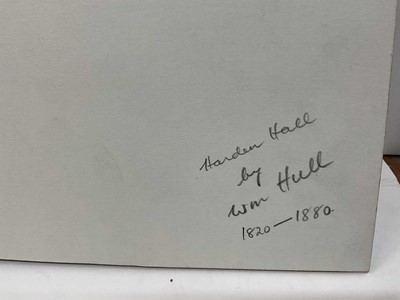 Harden Hall
by
Wm Hull
1820—1880